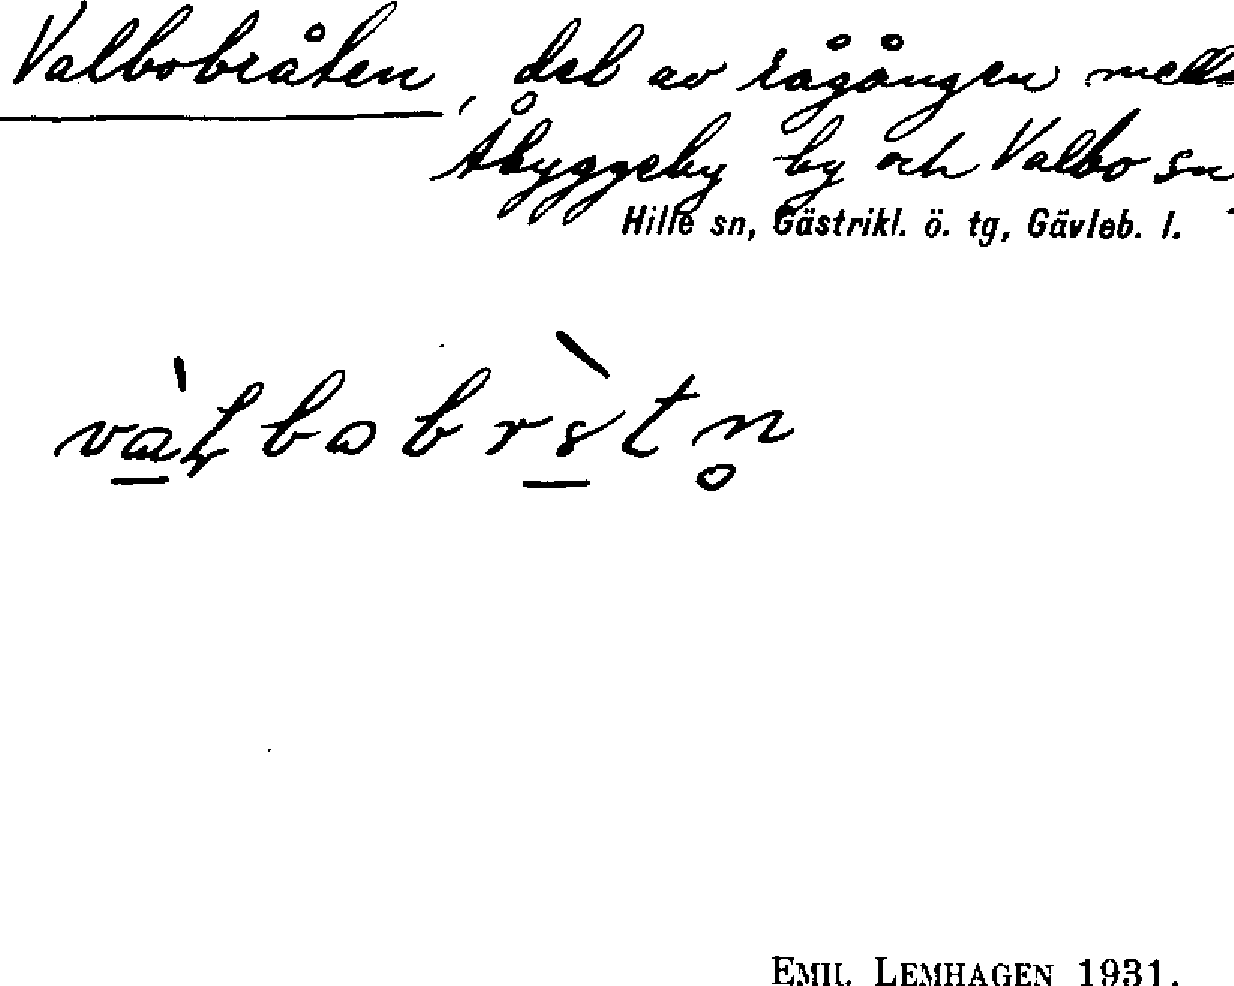 Valbobråten, del av rågången mella
Åbyggeby by och Valbo sn
Hille sn, Gästrikl. ö. tg, Gävleb. l.
EMIL LEMHAGEN 1931.